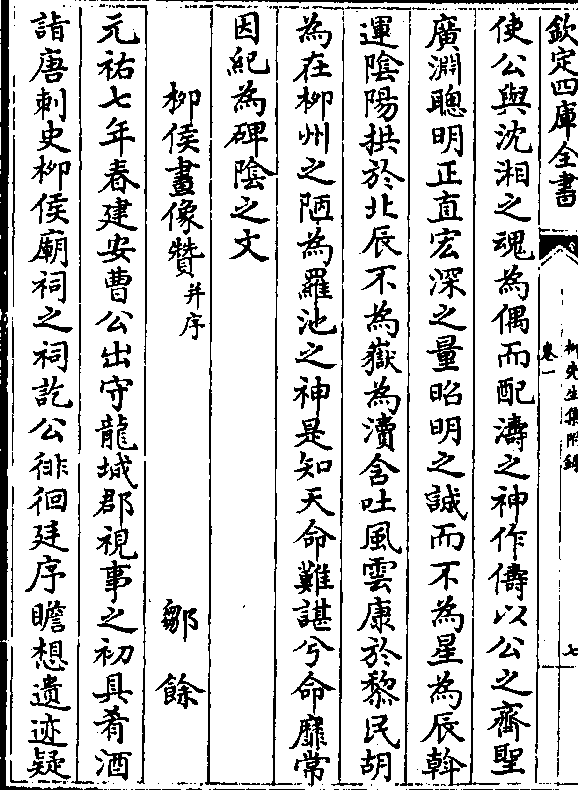 欽定四庫全書
柳先生集附録
卷一
七
使公與沈湘之魂為偶而配濤之神作儔以公之齊聖
廣淵聰明正直宏深之量昭明之誠而不為星為辰斡
運陰陽拱於北辰不為嶽為瀆含吐風雲康於黎民胡
為在柳州之陋為羅池之神是知天命難諶兮命靡常
因紀為碑陰之文
柳侯畫像贊并序
鄒餘
元祐七年春建安曹公出守龍城郡視事之初具肴酒
詣唐刺史柳侯廟祠之祠訖公徘徊廷序瞻想遺迹疑